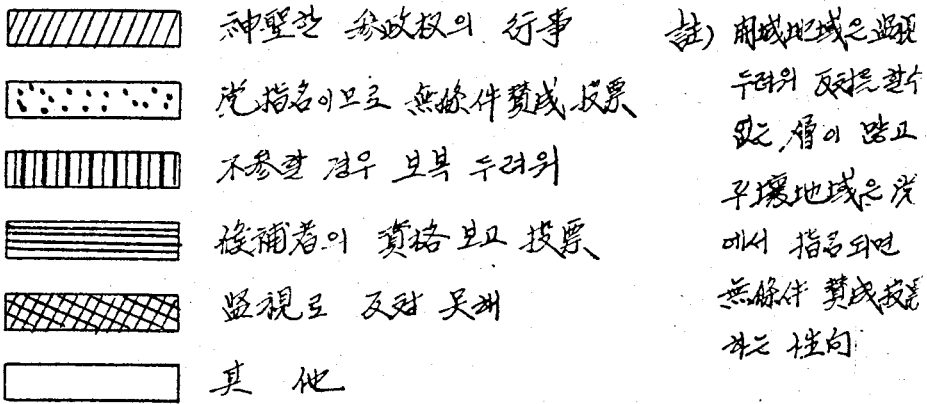 神聖한 參政权의 行事
党指名이므로 無條件贊成投票
不參할 경우 보복 두려워
候補者의 資格보고 投票
監視로 反対 못해
其 他
註) 開城地域은 監視
두려워 反対를 할수
없는 層이 많고
平壤地域은 党
에서 指名되면
無條件 贊成投票
하는 性向